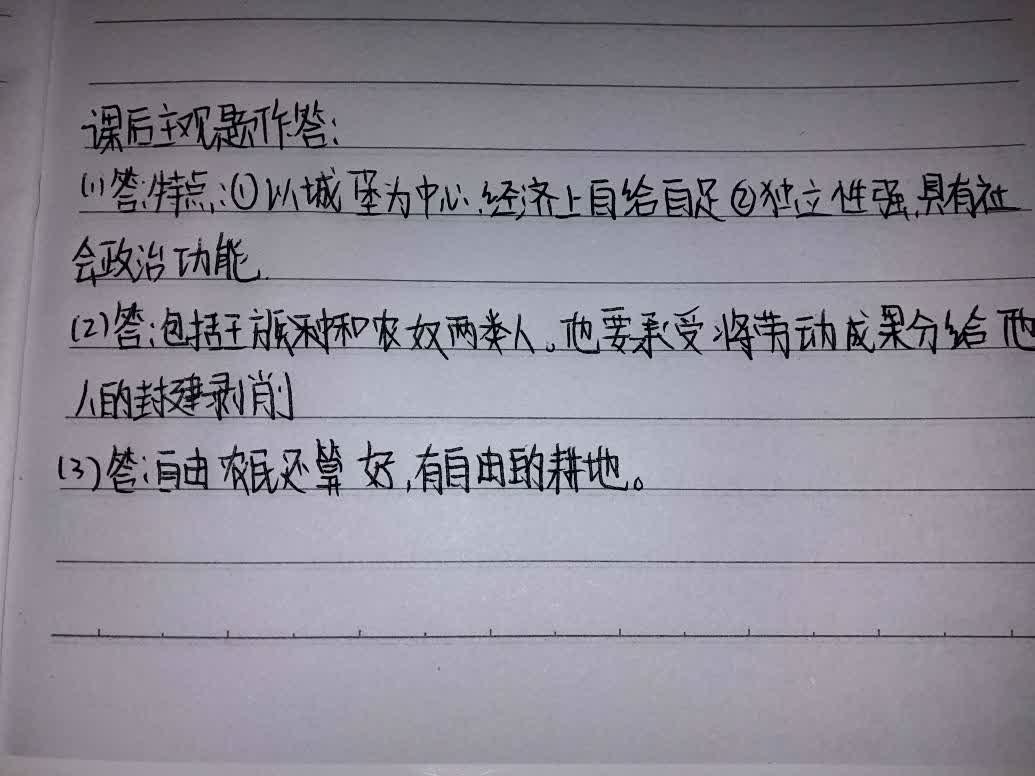 课后主观题作答:
(1)答:特点:①以城堡为中心,经济上自给自足②独立性强,具有社
会政治功能.
(2)答:包括王族和农奴两类人。也要承受将劳动成果分给他
人的封建剥削
(3)答:自由农民还算好,有自由的耕地。